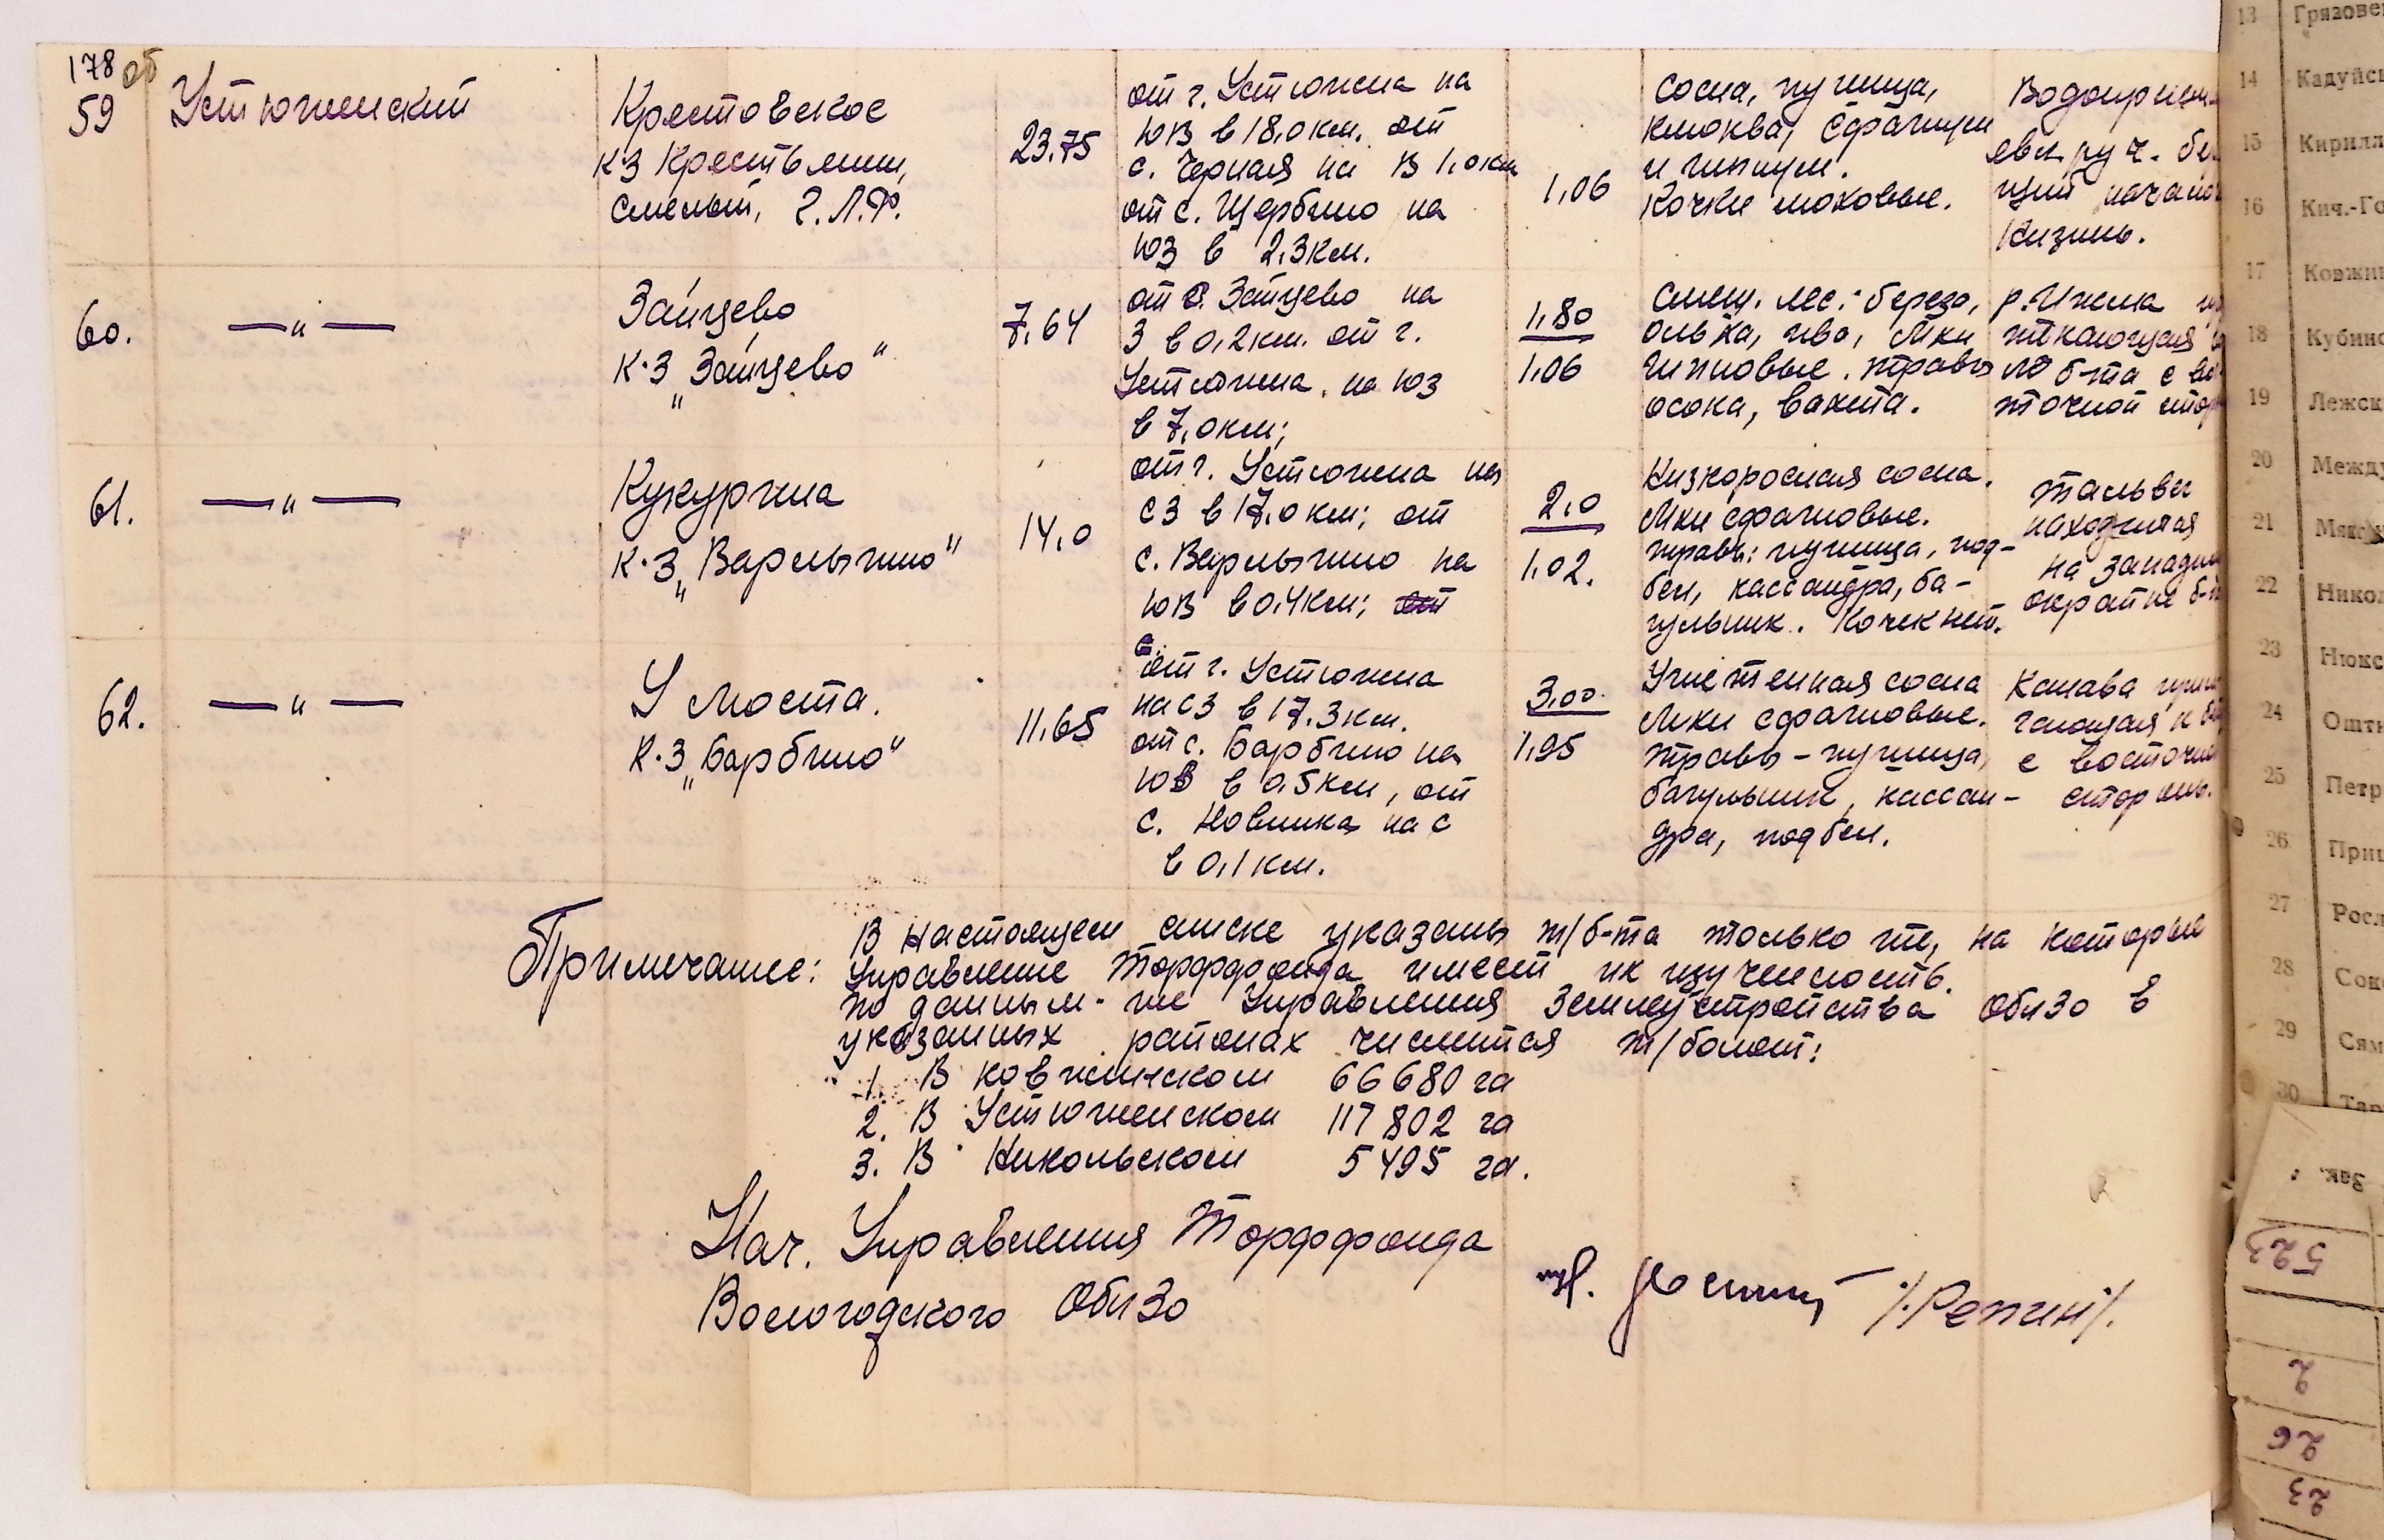 178 об
59
Устюженский
Крестовское
К-З Крестьянин,
Смелый, 2. Л.Ф.
23.75
от г. Устюжна на
ЮВ в 18,0 км. от
с. Черная на В 1,0 км
от с. Щербино на
ЮЗ в 2,3 км.
1,06
Сосна, пушица,
клюква, сфагнум
и гипнум.
Кочки моховые.
Водоприем
явл. руч. бе
щий начало
Кизинь.
60.
— „ —
Зайцево
К-З „Зайцево"
7,64
от с. Зайцево на
З в 0,2 км. от г.
Устюжна на ЮЗ
в 7,0 км;
1,80
1,06
Смеш. лес: береза,
ольха, ива, Мхи
гипновые. травы
осока, вахта.
р. Ижма
текающая
б-та с во
сточной стор
61.
— „ —
Кукургина
К-З „Вармычино"
14,0
от г. Устюжна на
СЗ в 17,0 км; от
с. Вармычино на
ЮВ в 0,4 км; от
с.
2,0
1,02.
Низкорослая сосна.
Мхи сфагновые.
травы: пушица, под-
бел, кассандра, ба-
гульник. Кочек нет.
Тальвег
находится
на западн
окраине б-т
62.
— „ —
У моста.
К-З „Барбино"
11,65
от г. Устюжна
на СЗ в 17.3 км.
от с. Барбино на
ЮВ в 0,5 км, от
с. Новинка на С
в 0,1 км.
3,00
1,95
Угнетенная сосна
Мхи сфагновые.
травы - пушица,
багульник, кассан-
дра, подбел.
Канава прим
гающая к б
с восточн
стороны.
Примечание:
В настоящем списке указаны т/б-та только те, на которые
Управление Торффонда имеет их изученность.
По данным-же Управления Землеустройства ОблЗО в
указанных районах числится т/болот:
1. В Ковжинском 66680 га
2. В Устюженском 117802 га
3. В Никольском 5495 га.
Нач. Управления Торффонда
Вологодского ОблЗО
/Репин/.
13 Грязове
14 Кадуйс
15 Кирилл
16 Кич.-Го
17 Ковжин
18 Кубинс
19 Лежск
20 Межд
21 Мякс
22 Никол
23 Нюкс
24 Ошт
25 Петр
26 При
27 Росл
28 Сок
29 Сям
30 Тар
Зак.
523
2
26
23